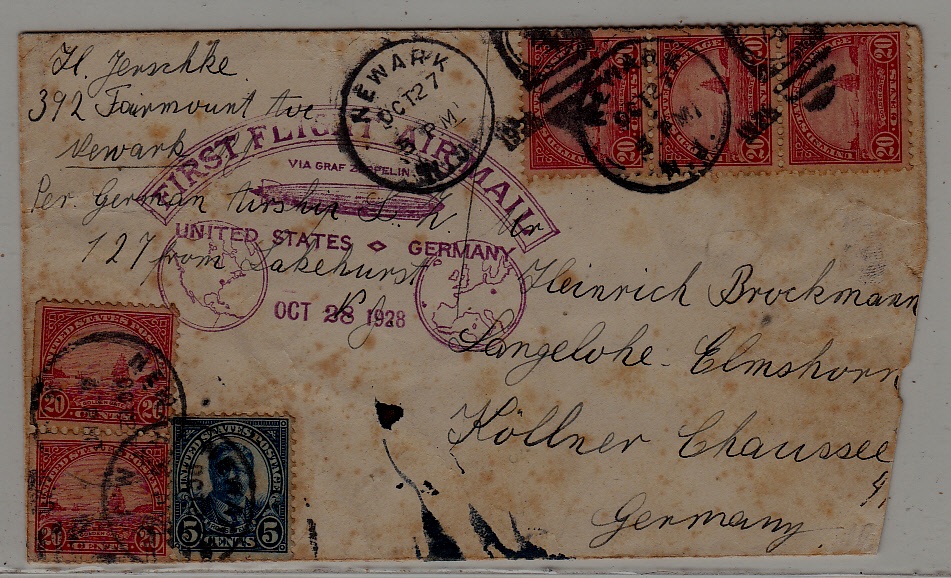 H. Jerschke
392 Fairmount Ave
Newark
Per German Airship L. Z.
127 from Lakehurst
N.J.
FIRST FLIGHT AIR MAIL
VIA GRAF ZEPPELIN
UNITED STATES GERMANY
OCT 28 1928
NEWARK
OCT 27
PM
N.J.
Mr
Heinrich Brockmann
Langelohe-Elmshorn
Köllner Chaussee
4,
Germany
20 CENTS 20
20 CENTS 20
20 CENTS 20
UNITED STATES POSTAGE
20 CENTS 20
UNITED STATES POSTAGE
20 CENTS 20
UNITED STATES POSTAGE
5 CENTS 5